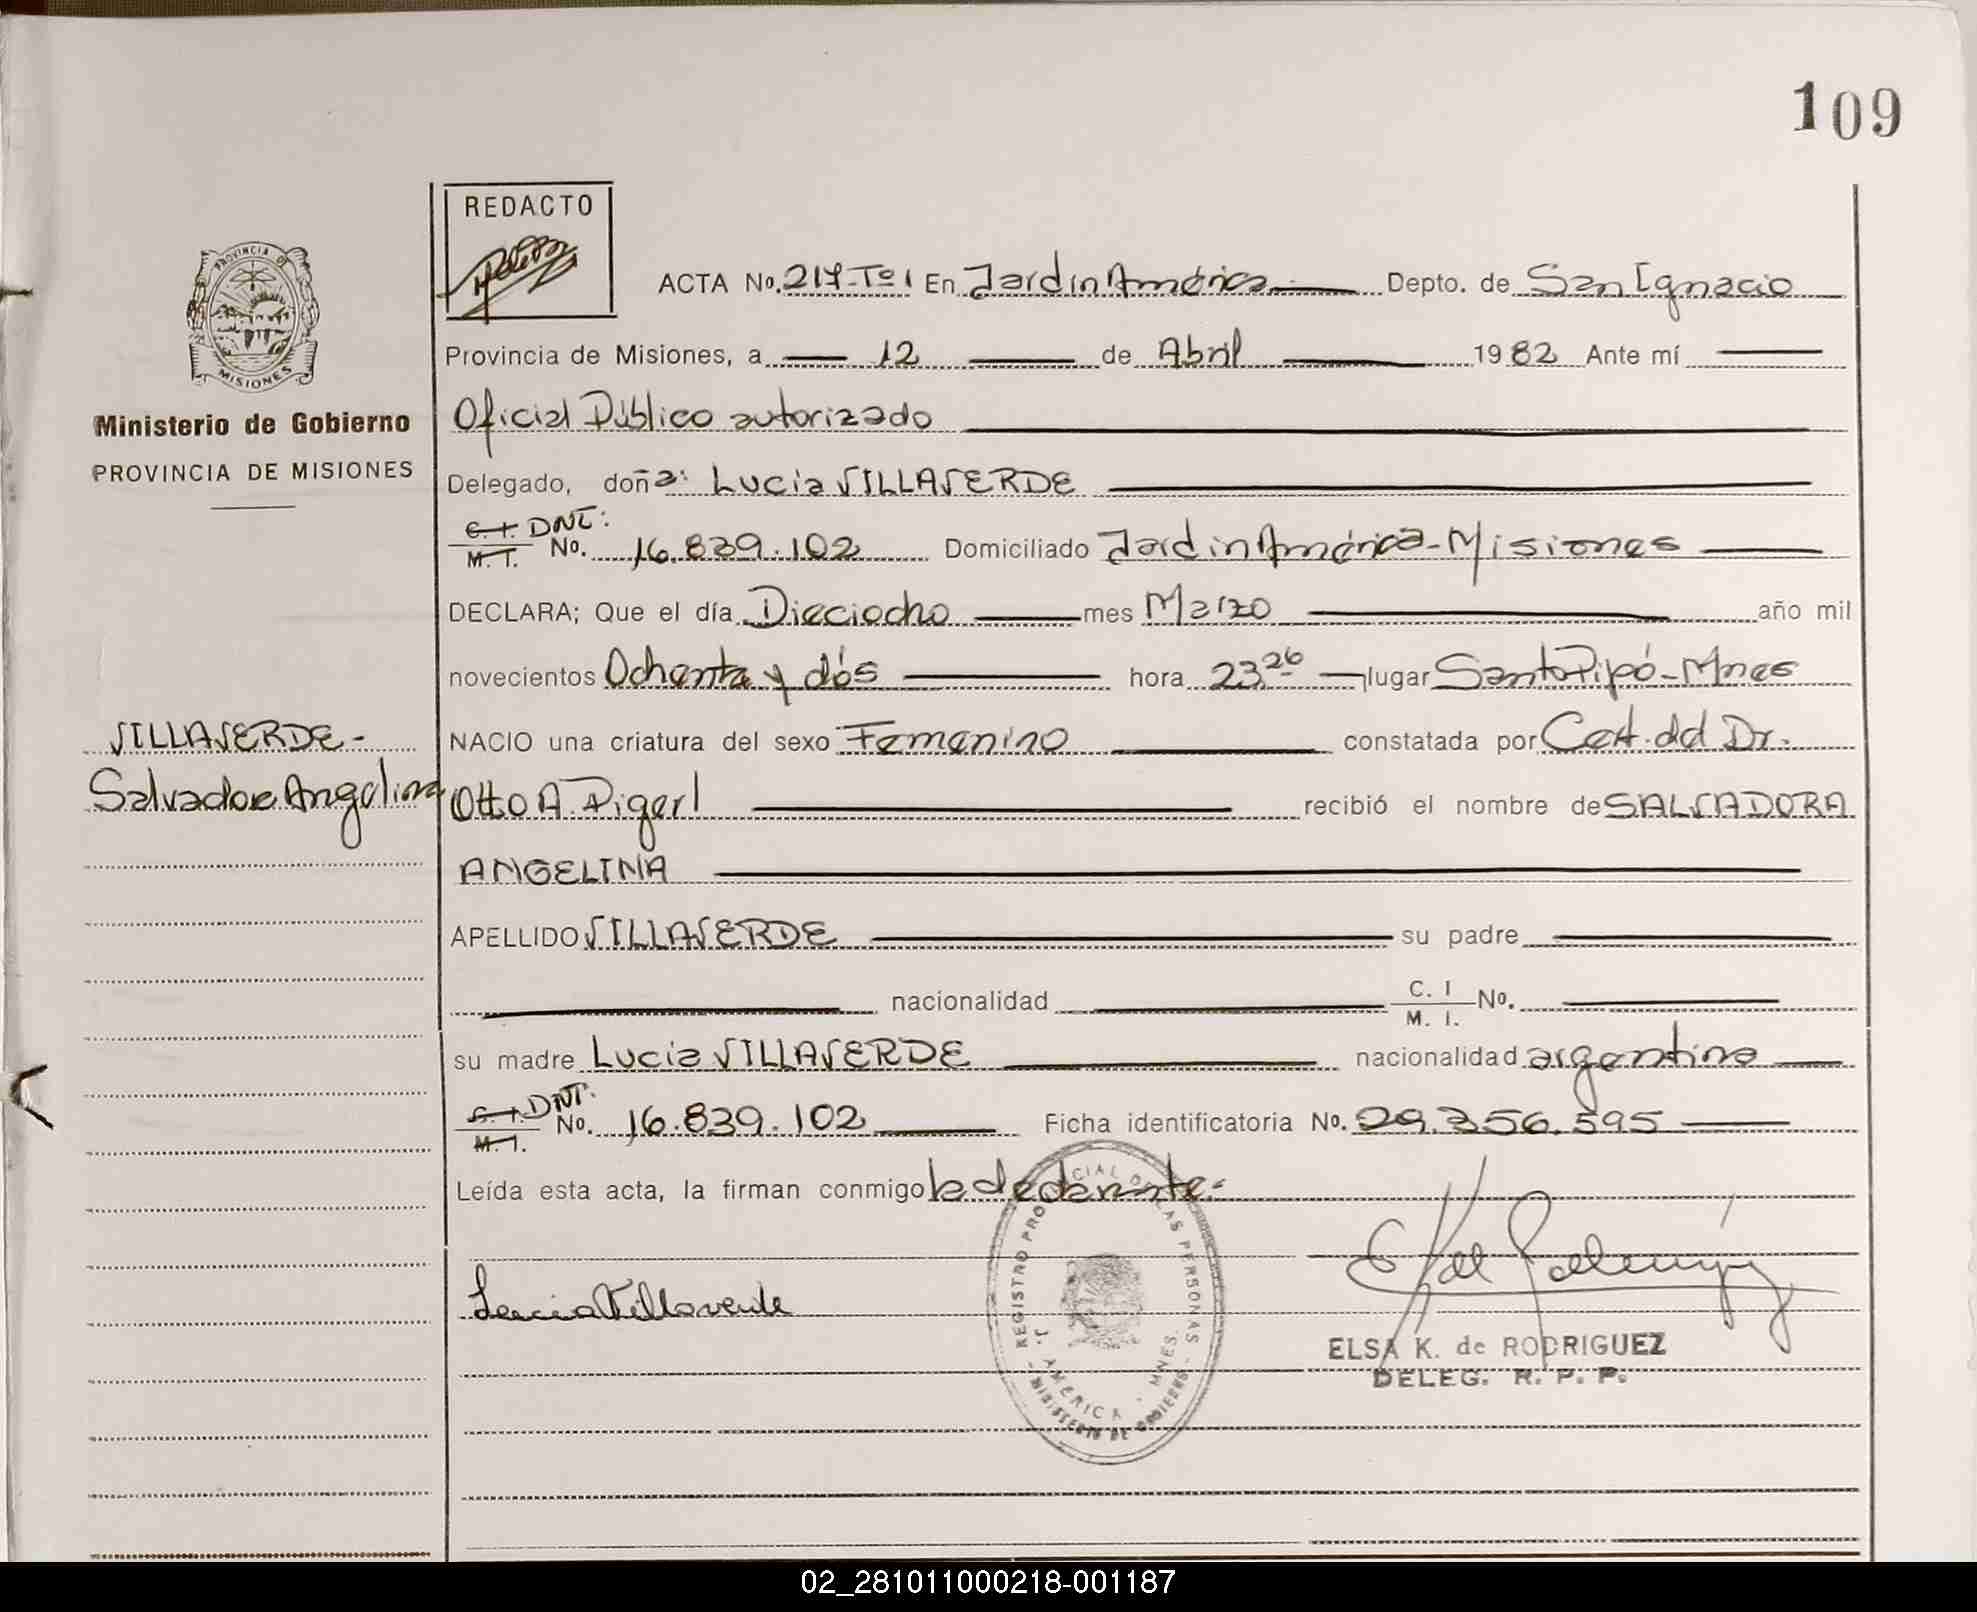 109
REDACTO
PROVINCIA DE
MISIONES
Ministerio de Gobierno
PROVINCIA DE MISIONES
ACTA No. 217-Tº1 En Jardín América Depto. de San Ignacio
Provincia de Misiones, a 12 de Abril 1982 Ante mí
Oficial Público autorizado
Delegado, doña: Lucia VILLAVERDE
C. I. DNI:
M. I. No. 16.839.102 Domiciliado Jardin América-Misiones
DECLARA; Que el día Dieciocho mes Marzo año mil
novecientos Ochenta y dós hora 23,26 lugar Santo Pipó-Mnes
VILLAVERDE-
NACIO una criatura del sexo Femenino constatada por Cert. del Dr.
Salvadora Angelina
Otto A. Digerl recibió el nombre de SALVADORA
ANGELINA
APELLIDO VILLAVERDE su padre
nacionalidad C. I
M. I. No.
su madre Lucia VILLAVERDE nacionalidad argentina
C. I. DNI:
M. I. No. 16.839.102 Ficha identificatoria No. 29.356.595
Leída esta acta, la firman conmigo la declarante.-
Lucia Villaverde
REGISTRO PROVINCIAL DE LAS PERSONAS
J. AMERICA - MNES.
MINISTERIO DE GOBIERNO
ELSA K. de RODRIGUEZ
DELEG. R. P. P.
02_281011000218-001187